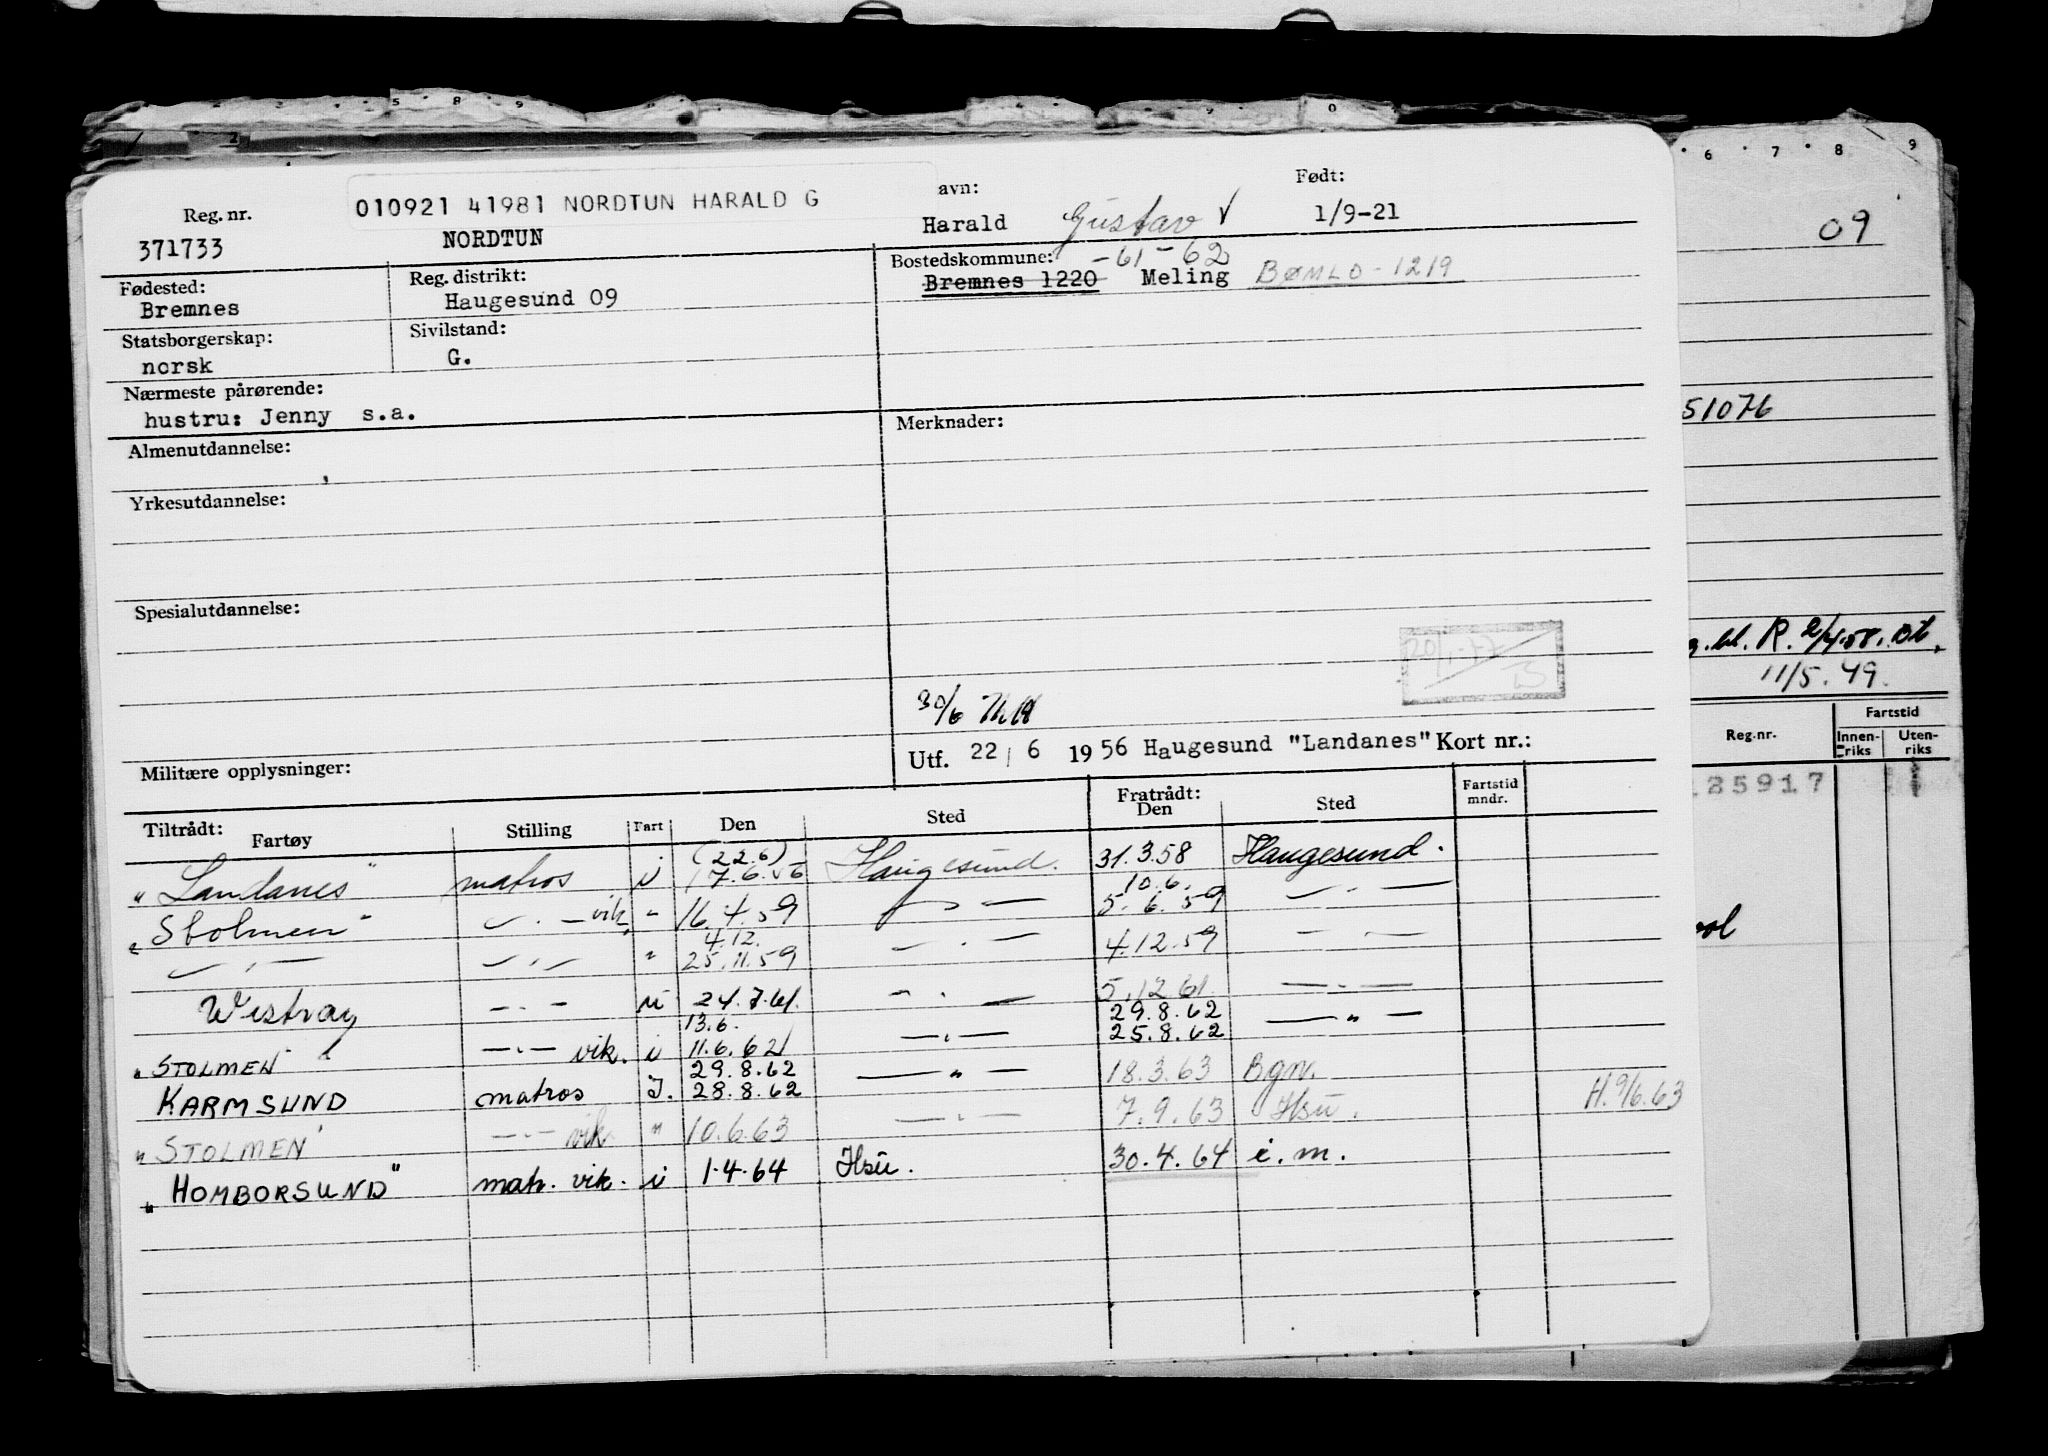 010921 41981 NORDTUN HARALD G
avn:
Født:
Reg. nr.
371733
NORDTUN
Harald Gustav √
1/9-21
Fødested:
Bremnes
Reg. distrikt:
Haugesund 09
Bostedskommune: -61-62
Bremnes 1220 Meling BØMLO-1219
Statsborgerskap:
norsk
Sivilstand:
G.
Nærmeste pårørende:
hustru: Jenny s.a.
Almenutdannelse:
Merknader:
Yrkesutdannelse:
Spesialutdannelse:
30/6
Utf. 22/6 1956 Haugesund "Landanes" Kort nr.:
Militære opplysninger:
Tiltrådt:
Fartøy Stilling Fart Den Sted Fratrådt: Den Sted Fartstid mndr.
(22.6)
"Landanes" matros i 17.6.56 Haugesund. 31.3.58 Haugesund.
10.6.
"Stolmen" — " — vik. " 16.4.59 — " — 5.6.59 — " —
4.12.
— " — — " — " 25.11.59 — " — 4.12.59 — " —
Westray — " — u 24.7.61. — " — 5.12.61. — " —
13.6. 29.8.62
"STOLMEN" — " — vik. i 11.6.62 — " — 25.8.62 — " —
29.8.62
KARMSUND matros I. 28.8.62 — " — 18.3.63 Bgn.
"STOLMEN" — " — vik. " 10.6.63 — " — 7.9.63 Hsu. H.9/6.63
"HOMBORSUND" matr. vik. i 1.4.64 Hsu. 30.4.64 i.m.
6 7 8 9
09
51076
11/5.49.
Reg.nr.
Fartstid
Innen-riks
Uten-riks